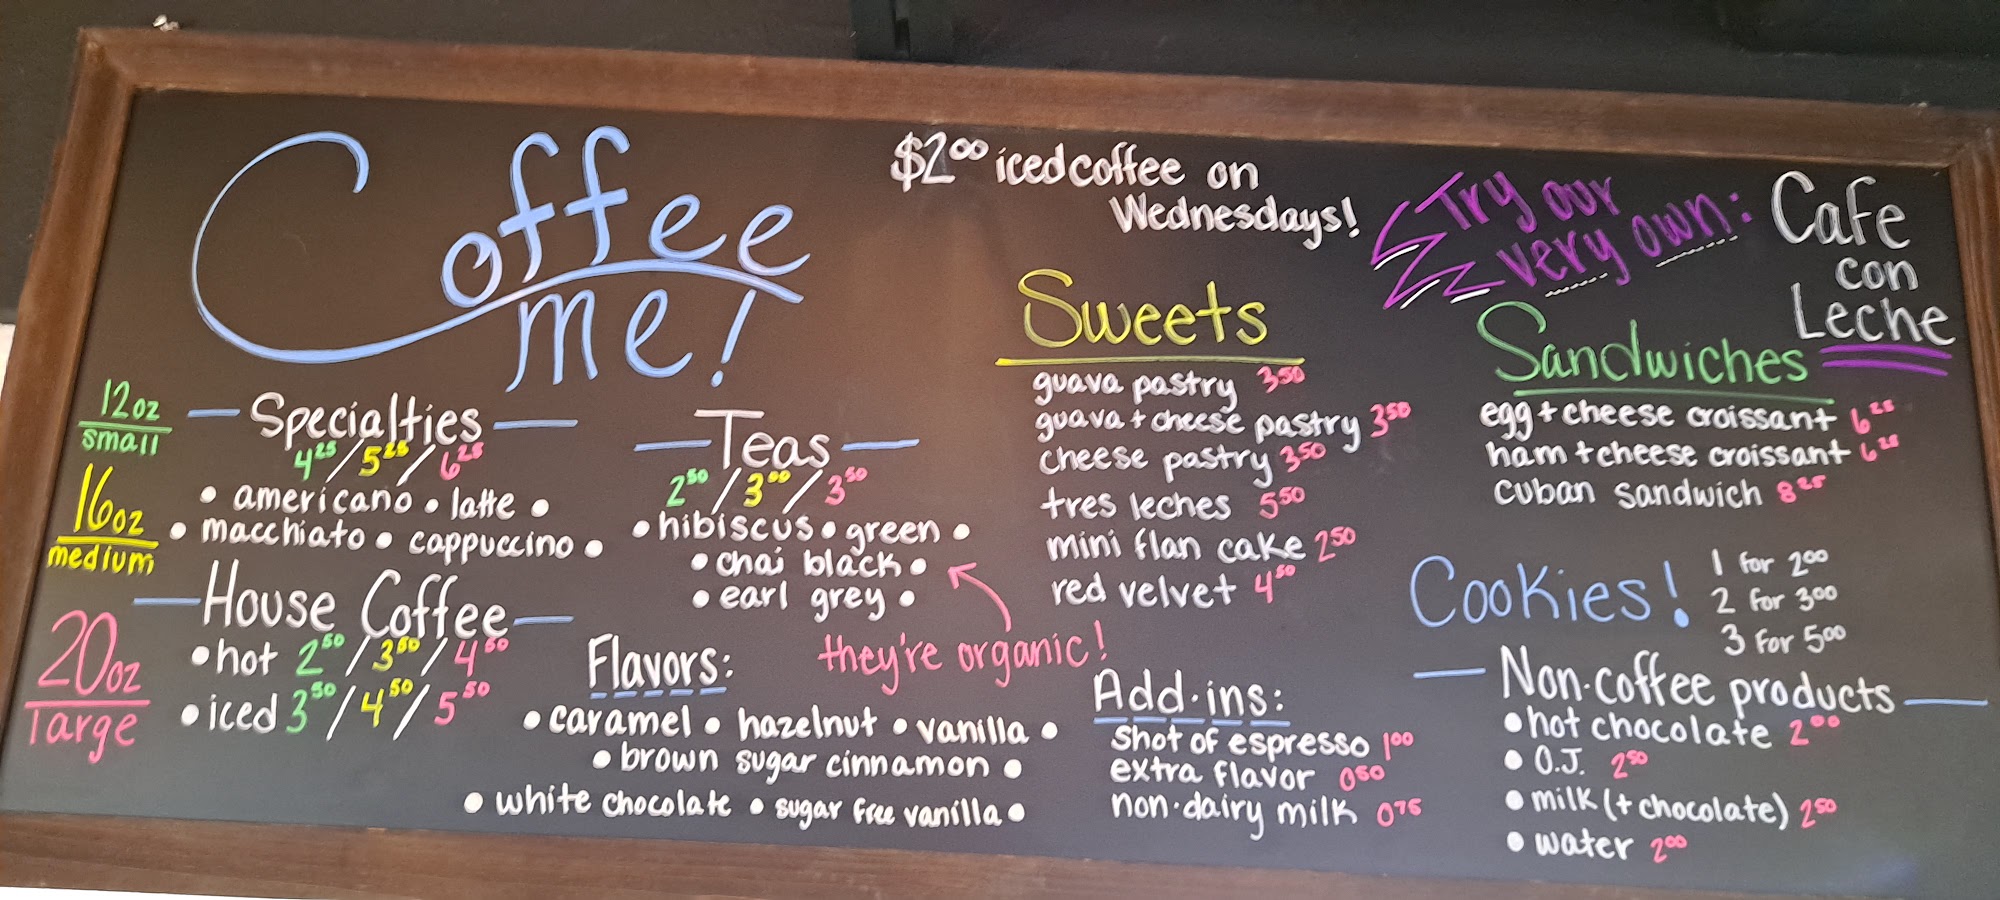 Coffee
me!
$2.00 iced coffee on
Wednesdays!
Try our
very own:
Cafe
con
Leche
12oz
small
16oz
medium
20oz
large
Specialties
4.25/5.25/6.25
• americano • latte •
• macchiato • cappuccino •
House Coffee
• hot 2.50/3.50/4.50
• iced 3.50/4.50/5.50
Teas
2.50/3.00/3.50
• hibiscus • green •
• chai black •
• earl grey •
they're organic!
Flavors:
• caramel • hazelnut • vanilla •
• brown sugar cinnamon •
• white chocolate • sugar free vanilla •
Sweets
guava pastry 3.50
guava + cheese pastry 3.50
cheese pastry 3.50
tres leches 5.50
mini flan cake 2.50
red velvet 4.50
Add-ins:
shot of espresso 1.00
extra flavor 0.50
non-dairy milk 0.75
Sandwiches
egg + cheese croissant 6.25
ham + cheese croissant 6.25
cuban sandwich 8.25
Cookies!
1 for 2.00
2 for 3.00
3 for 5.00
Non-coffee products
• hot chocolate 2.00
• O.J. 2.50
• milk (+ chocolate) 2.50
• water 2.00